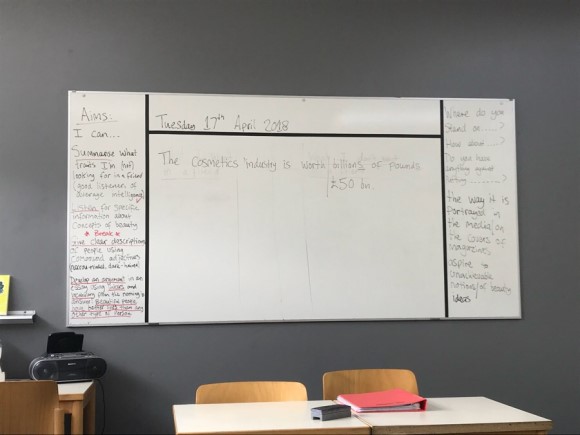 Aims:
I can...
Summarise what
traits I'm (not)
looking for in a friend
(good listener, of
average intelligence)
Listen for specific
information about
concepts of beauty
* Break *
give clear descriptions
of people using
compound adjectives
(narrow-minded, dark-haired)
Develop an argument in an
essay using ideas and
vocabulary from the morning's
Beautiful people
have better lives than any
other type of person
Tuesday 17th April 2018
The Cosmetics industry is worth billions of pounds
£50 bn.
Where do you
stand on.....?
How about.....?
Do you have
anything against
.........?
the way it is
portrayed in
the media/on
the covers of
magazines
aspire to
unachievable
notions/of beauty
ideas